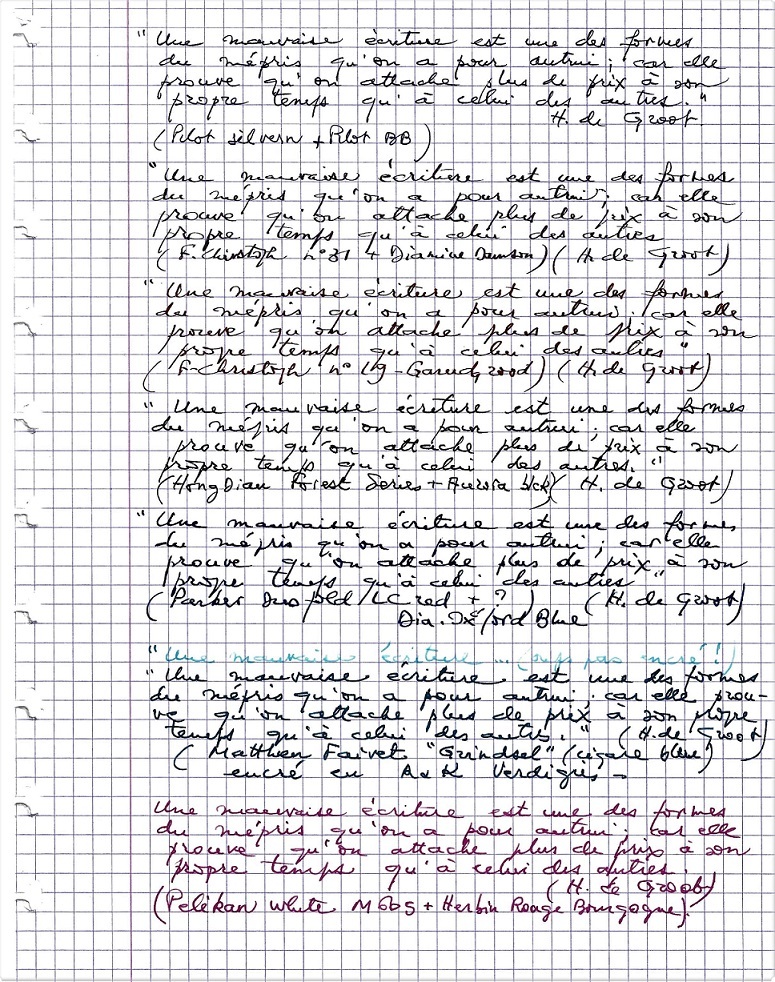 "Une mauvaise écriture est une des formes
du mépris qu'on a pour autrui; car elle
prouve qu'on attache plus de prix à son
propre temps qu'à celui des autres."
H. de Groot
(Pilot silvern + Pilot BB)
"Une mauvaise écriture est une des formes
du mépris qu'on a pour autrui; car elle
prouve qu'on attache plus de prix à son
propre temps qu'à celui des autres
(F. Christoph n°31 + Diamine Damson) (H. de Groot)
"Une mauvaise écriture est une des formes
du mépris qu'on a pour autrui; car elle
prouve qu'on attache plus de prix à son
propre temps qu'à celui des autres"
(F-Christoph n° 19 - (H. de Groot)
"Une mauvaise écriture est une des formes
du mépris qu'on a pour autrui; car elle
prouve qu'on attache plus de prix à son
propre temps qu'à celui des autres."
(HongDian Forest Series + Aurora bck) (H. de Groot)
"Une mauvaise écriture est une des formes
du mépris qu'on a pour autrui; car elle
prouve qu'on attache plus de prix à son
propre temps qu'à celui des autres"
(Parker Duofold LC red + ?) (H. de Groot)
Dia. Oxford Blue
"Une mauvaise écriture ... (oups pas encré!)
"Une mauvaise écriture est une des formes
du mépris qu'on a pour autrui; car elle prou-
ve qu'on attache plus de prix à son propre
temps qu'à celui des autres." (H. de Groot)
(Matthieu Faivet "Grindsel" (cigare bleu)
encré en R & K Verdigris -
Une mauvaise écriture est une des formes
du mépris qu'on a pour autrui; car elle
prouve qu'on attache plus de prix à son
propre temps qu'à celui des autres.
(H. de Groot)
(Pelikan white M605 + Herbin Rouge Bourgogne).